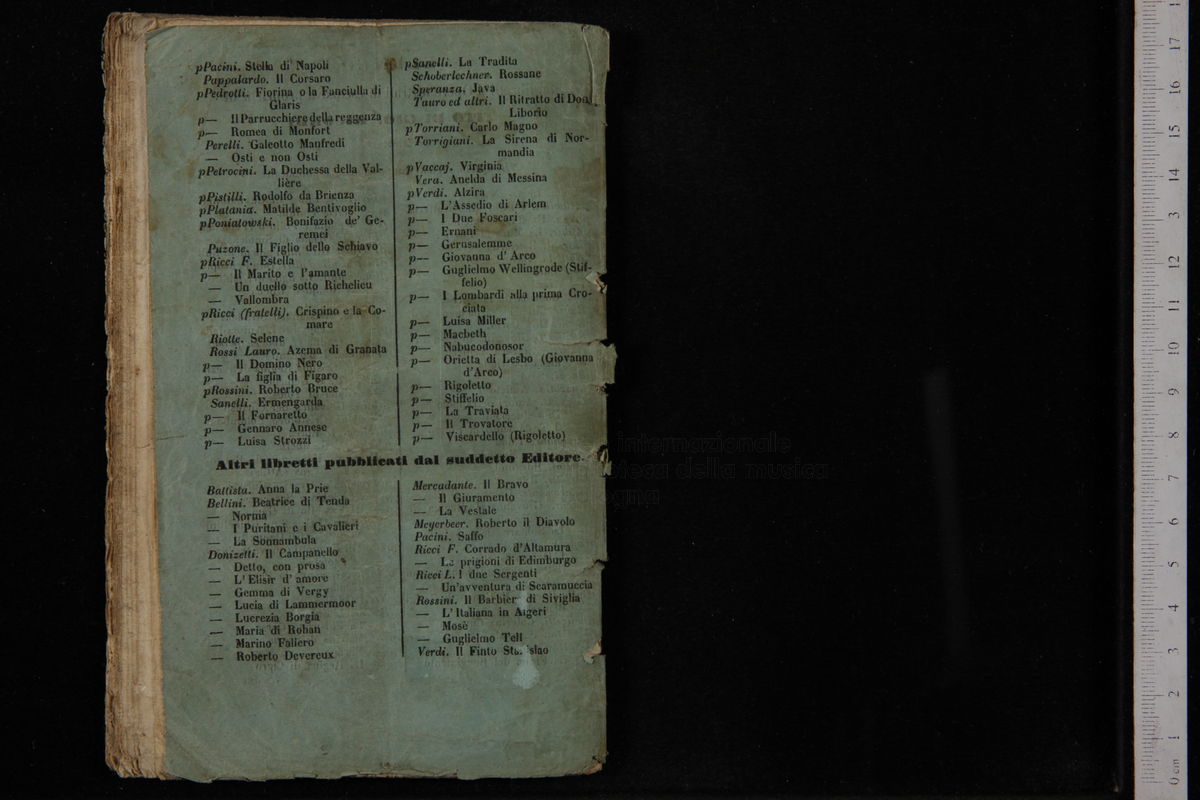 pPacini. Stella di Napoli
Pappalardo. Il Corsaro
pPedrotti. Fiorina o la Fanciulla di
Glaris
p— Il Parrucchiere della reggenza
p— Romea di Monfort
Perelli. Galeotto Manfredi
— Osti e non Osti
pPetrocini. La Duchessa della Val-
lière
pPistilli. Rodolfo da Brienza
pPlatania. Matilde Bentivoglio
pPoniatowski. Bonifazio de' Ge-
remei
Puzone. Il Figlio dello Schiavo
pRicci F. Estella
p— Il Marito e l'amante
— Un duello sotto Richelieu
— Vallombra
pRicci (fratelli). Crispino e la Co-
mare
Riotte. Selene
Rossi Lauro. Azema di Granata
p— Il Domino Nero
p— La figlia di Figaro
pRossini. Roberto Bruce
Sanelli. Ermengarda
p— Il Fornaretto
p— Gennaro Annese
p— Luisa Strozzi
pSanelli. La Tradita
Schoberlechner. Rossane
Speranza. Java
Tauro ed altri. Il Ritratto di Don
Liborio
pTorriani. Carlo Magno
Torrigiani. La Sirena di Nor-
mandia
pVaccaj. Virginia
Vera. Anelda di Messina
pVerdi. Alzira
p— L'Assedio di Arlem
p— I Due Foscari
p— Ernani
p— Gerusalemme
p— Giovanna d'Arco
p— Guglielmo Wellingrode (Stif-
felio)
p— I Lombardi alla prima Cro-
ciata
p— Luisa Miller
p— Macbeth
p— Nabucodonosor
p— Orietta di Lesbo (Giovanna
d'Arco)
p— Rigoletto
p— Stiffelio
p— La Traviata
p— Il Trovatore
p— Viscardello (Rigoletto)
Altri libretti pubblicati dal suddetto Editore.
Battista. Anna la Prie
Bellini. Beatrice di Tenda
— Norma
— I Puritani e i Cavalieri
— La Sonnambula
Donizetti. Il Campanello
— Detto, con prosa
— L'Elisir d'amore
— Gemma di Vergy
— Lucia di Lammermoor
— Lucrezia Borgia
— Maria di Rohan
— Marino Faliero
— Roberto Devereux
Mercadante. Il Bravo
— Il Giuramento
— La Vestale
Meyerbeer. Roberto il Diavolo
Pacini. Saffo
Ricci F. Corrado d'Altamura
— Le prigioni di Edimburgo
Ricci L. I due Sergenti
— Un'avventura di Scaramuccia
Rossini. Il Barbier di Siviglia
— L'Italiana in Algeri
— Mosè
— Guglielmo Tell
Verdi. Il Finto
internazionale
della musica
0 cm 1 2 3 4 5 6 7 8 9 10 11 12 3 14 15 16 17